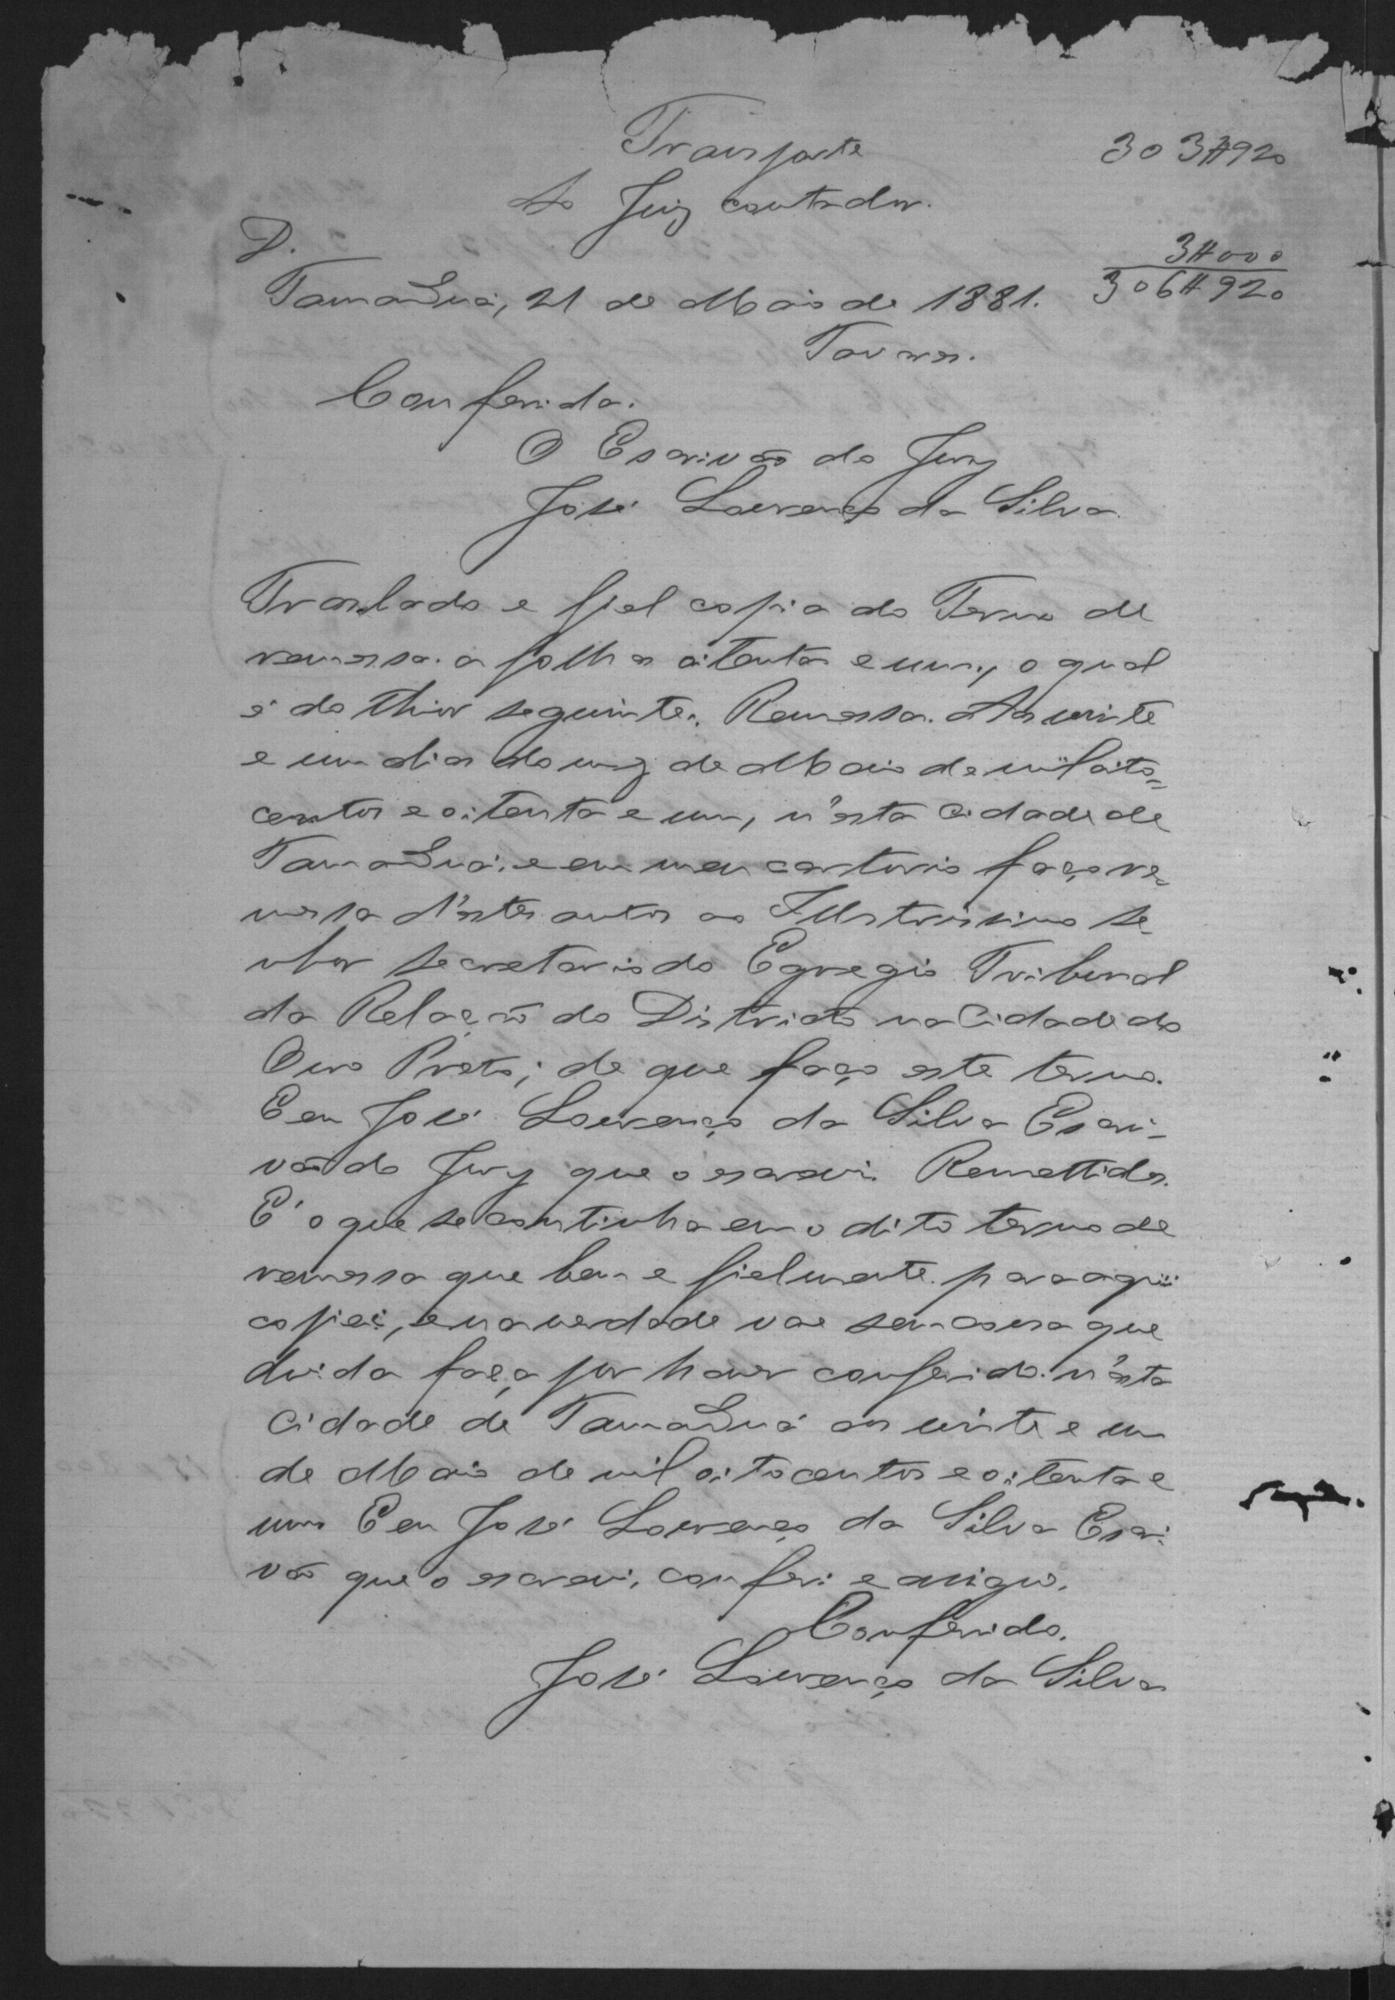 Transporte 303$920
Ao Juiz contador.
D. 3$000
Tamanduá, 21 de Maio de 1881. 306$920
Tavares.
Conferida.
O Escrivão do Jury
José Lourenço da Silva
Traslado e fiel copia do Termo de
remessa a folhas oitenta e uma, o qual
é do theor seguinte. Remessa. Aos vinte
e um dias do mez de Maio de mil oito=
centos e oitenta e um, n'esta Cidade de
Tamanduá, e em meu cartorio faço re=
messa d'estes autos ao Illustrissimo Se-
nhor Secretario do Egregio Tribunal
da Relação do Districto na Cidade do
Ouro Preto; de que faço este termo.
Eu José Lourenço da Silva Escri-
vão do Jury que o escrevi. Remettidos.
É o que se continha em o dito termo de
remessa que bem e fielmente para aqui
copiei, e na verdade vae sem cousa que
duvida faça por haver conferido n'esta
Cidade de Tamanduá aos vinte e um
de Maio de mil oitocentos e oitenta e
um Eu José Lourenço da Silva Escri-
vão que o escrevi, conferi e assigno.
Conferido.
José Lourenço da Silva